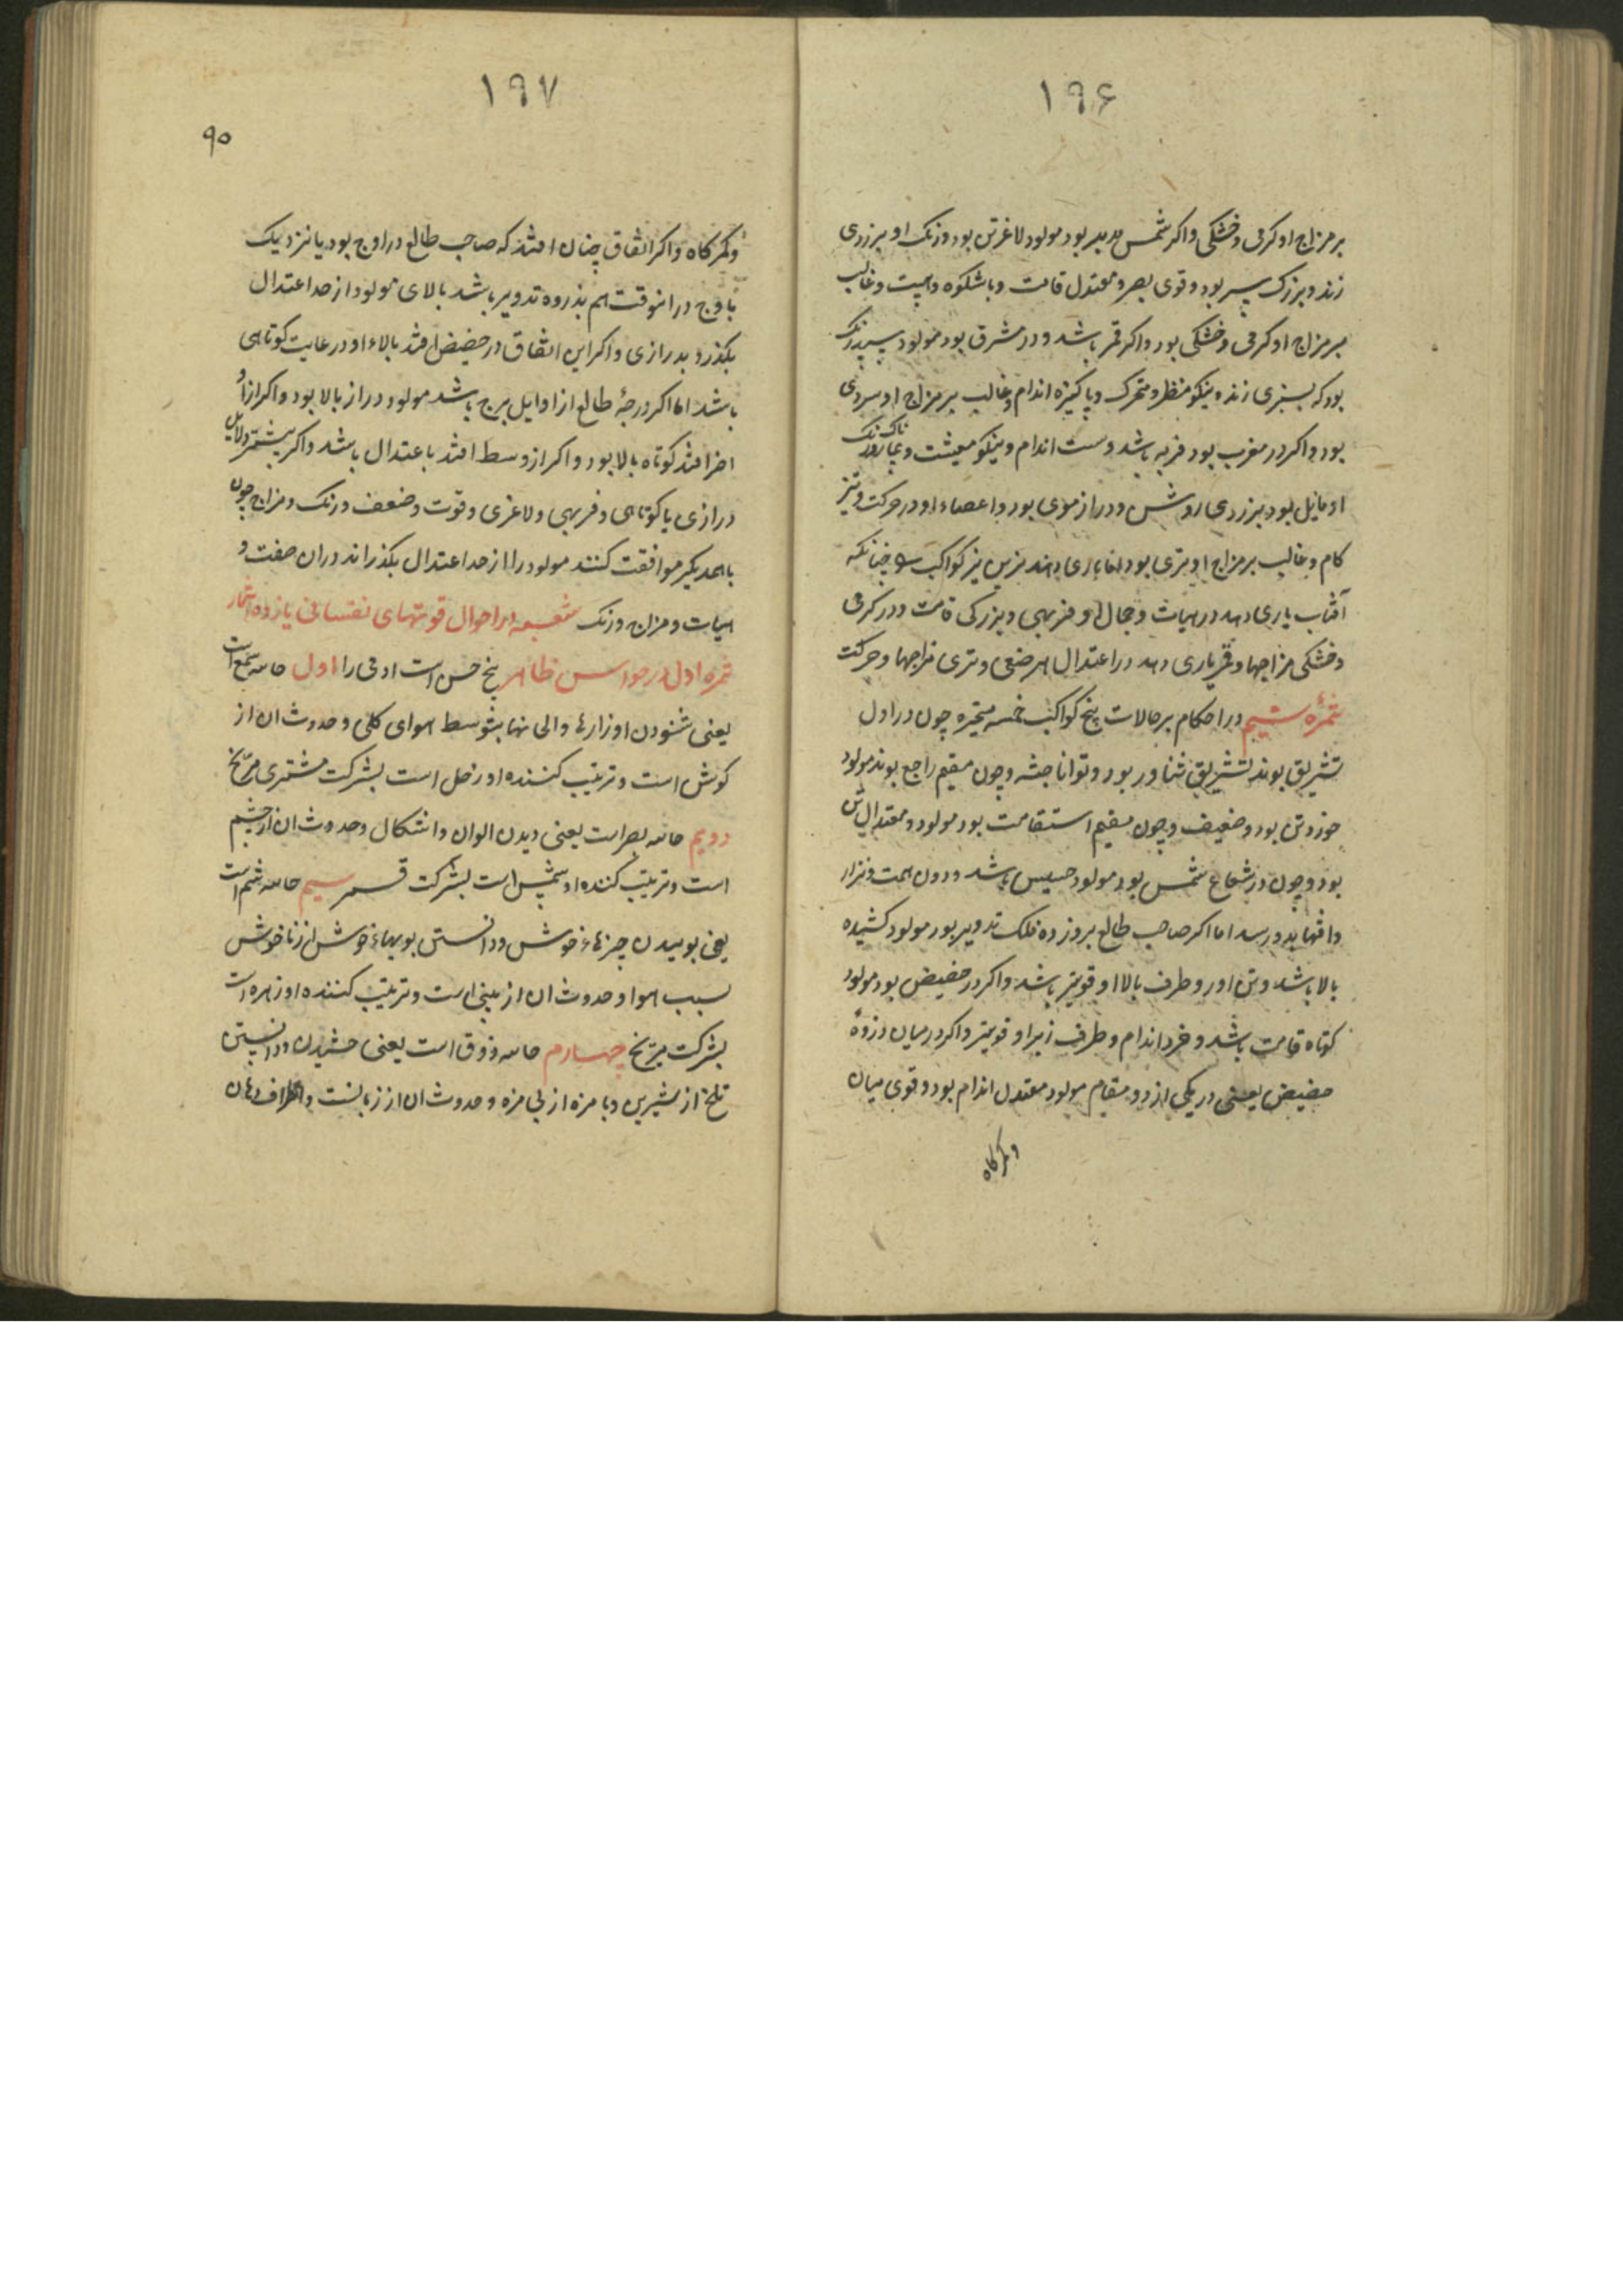 ۱۹۶
بر مزاج او کرمی و خشکی و اکر شمس مدبر بود مولود لاغرتن بود و رنک او بزردی
زند و بزرک سر بود و قوی بصر و معتدل قامت و با شکوه و هیبت و غالب
بر مزاج او کرمی و خشکی بود و اکر قمر باشد و در مشرق بود مولود سپید رنک
بود که بسبزی زند و نیکو منظر و متحرک و پاکیزه اندام و غالب بر مزاج او سردی
بود و اکر در مغرب بود فربه باشد و سست اندام و نیکو معیشت و بیمارناک رنک
او مایل بود بزردی روشن و دراز موی بود و اعضاء او در حرکت و تیز
کام و غالب بر مزاج او تری بود اما یاری دهند نیرین نیز کواکب را چنانکه
آفتاب یاری دهد در هیات و جمال او و فربهی و بزرکی قامت و در کرمی
و خشکی مزاجها و قمر یاری دهد در اعتدال هر ضعی و تری مزاجها و حرکت
ثمرهٔ ششم در احکام بر حالات پنج کواکب خمسه متحیره چون در اول
تشریق بوند تشریق تناور بود و توانا جثه و چون مقیم راجع بوند مولود
خورد تن بود و ضعیف و چون مقیم استقامت بود مولود و معتدال تن
بود و چون در شعاع شمس بود مولود خسیس باشد و دون همت و نزار
و افتها بدو رسد اما اکر صاحب طالع بر وزوه فلک تدویر بود مولود کشیده
بالا باشد و تن اور و طرف بالا او قویتر باشد و اکر در حضیض بود مولود
کوتاه قامت باشد و خرد اندام و طرف زیر او قویتر و اکر در میان ذروهٔ
حضیض یعنی در یکی از دو مقام مولود معتدل اندام بود و قوی میان
و کمرکاه
۱۹۷
۹۰
و کمرکاه و اکر اتفاق چنان افتد که صاحب طالع در اوج بود یا نزدیک
باوج در انوقت هم بذروه تدویر باشد بالای مولود از حد اعتدال
بکذرد بدرازی و اکر این اتفاق در حضیض افتد بالاء او در غایت کوتاهی
باشد اما اکر درجهٔ طالع از اوایل برج باشد مولود دراز بالا بود و اکر از
اخر افتد کوتاه بالا بود و اکر از وسط افتد باعتدال باشد و اکر بیشتر دلایل
درازی یا کوتاهی و فربهی و لاغری و قوت و ضعف و رنک و مزاج چون
با همدیکر موافقت کنند مولود را از حد اعتدال بکذراند در ان صفت و
هیات و مزاج و رنک شعبه در احوال قوتهای نفسانی یازده اثمار
ثمره اول در حواس ظاهر پنج حس است ادمی را اول حاسه سمع است
یعنی شنودن اوازارها و الی نها بتوسط هوای کلی و حدوث ان از
کوش است و تربیت کننده او زحل است بشرکت مشتری مریخ
دویم حاسه بصر است یعنی دیدن الوان و اشکال و حدوث ان از چشم
است و تربیت کننده او شمس است بشرکت قمر سیم حاسه شم است
یعنی بوییدن چیزهاء خوش و دانستن بویهاء خوش از ناخوش
بسبب هوا و حدوث ان از بینی است و تربیت کننده او زهره است
بشرکت مریخ چهارم حاسه ذوق است یعنی چشیدن و دانستن
تلخ از شیرین و با مزه از بی مزه و حدوث ان از زبانست و اطراف دهان